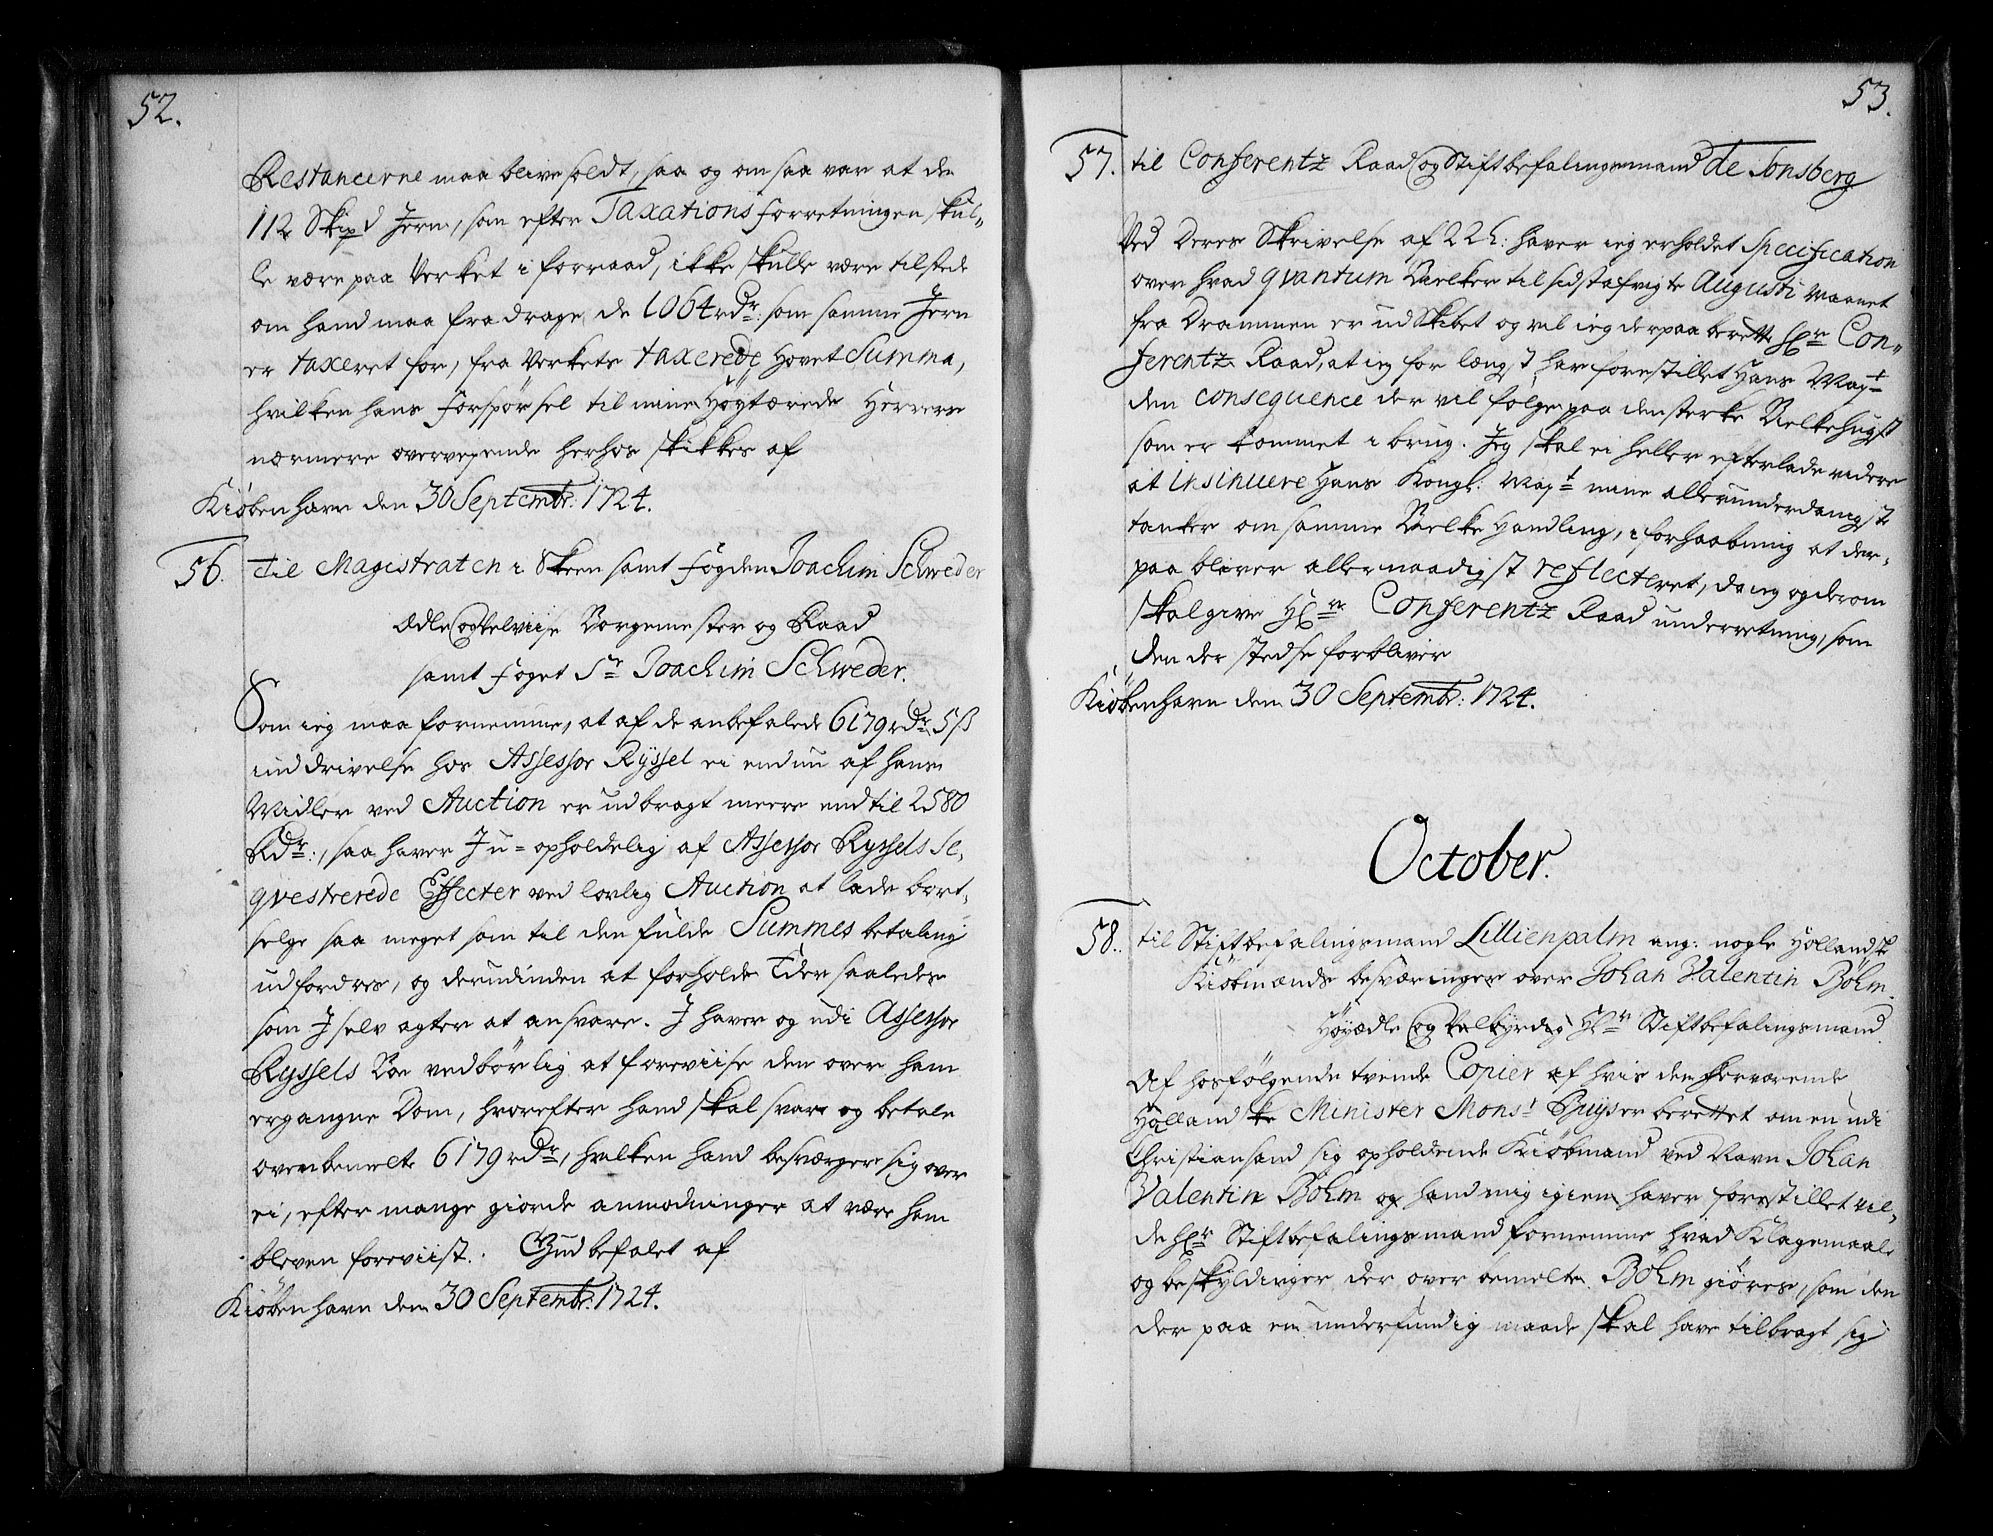 52.
Restancerne maa blive soldt, saa og om saa var at de
112 Skipd Jern, som efter Taxations forretningen skul-
le være paa Verket i forraad, ikke skulle være tilstede
om hand maa fradrage de 1064 rdr: som samme Jern
er taxeret for, fra Verkets taxerede Hovet Summa,
hvilken hans forspörsel til mine Höytærede Herrers
nærmere overvejende herhos skikkes af
Kiöbenhavn den 30 Septembr: 1724.
56. til Magistraten i Skeen samt fogden Joachim Schweder
Ædle og velviise Borgemester og Raad
samt foget Sr Joachim Schweder.
Som ieg maa fornemme, at af de anbefalede 6179 rdr 5 ß
inddrivelse hos Assessor Ryssel ei endnu af hans
Midler ved Auction er udbragt meere end til 2580
Rdr:, saa haver J u-opholdelig af Assessor Ryssels se-
qvestrerede Effecter ved lovlig Auction at lade bort-
selge saa meget som til den fulde Summes betaling
udfordres, og derudinden at forholde Eder saaledes
som J selv agter at ansvare. J haver og udi Assessor
Ryssels Boe vedbörlig at foreviise den over ham
ergangne Dom, hvorefter hand skal svare og betale
ovenbemelte 6179 rdr, hvilken hand besværger sig over
ei, efter mange giorde anmodninger at være ham
bleven foreviist. Gud befalet af
Kiöbenhavn den 30 Septembr: 1724.
53.
57. til Conferentz Raad og Stiftbefalingsmand de Tonsberg
Ved Deres Skrivelse af 22 h: haver ieg erholdet Specification
over hvad qvantum Bielker til sidst afvigte Augusti Maanet
fra Drammen er udskibet og vil ieg derpaa berette Hr Con-
ferentz Raad, at ieg for længst har forestillet Hans Mayt
den consequence der vil fölge paa den sterke Bielkehugst
som er kommet i brug. Jeg skal ei heller efterlade videre
at insinuere Hans Kongl: Mayt mine allerunderdanigste
tanker om samme Bielke Handling, i forhaabning at der-
paa bliver allernaadigst reflecteret, da ieg og derom
skal give Hr Conferentz Raad underretning, som
den der stedse forbliver
Kiöbenhavn den 30 Septembr: 1724.
October.
58. til Stiftbefalingsmand Lillienpalm ang: nogle Hollandske
Kiöbmænds besværinger over Johan Valentin Böhm.
Höyædle og velbyrdig Hr Stiftbefalingsmand.
Af hosfölgende tvende Copier af hvis den herværende
Hollandske Minister Monsr Buys er berettet om en udi
Christiansand sig opholdende Kiöbmand ved Navn Johan
Valentin Böhm og hand mig igien haver forestillet vil-
de Hr Stiftbefalingsmand fornemme hvad Klagemaale
og beskyldinger der over bemelte Böhm giöres, som den
der paa en underfundig maade skal have tilbragt sig